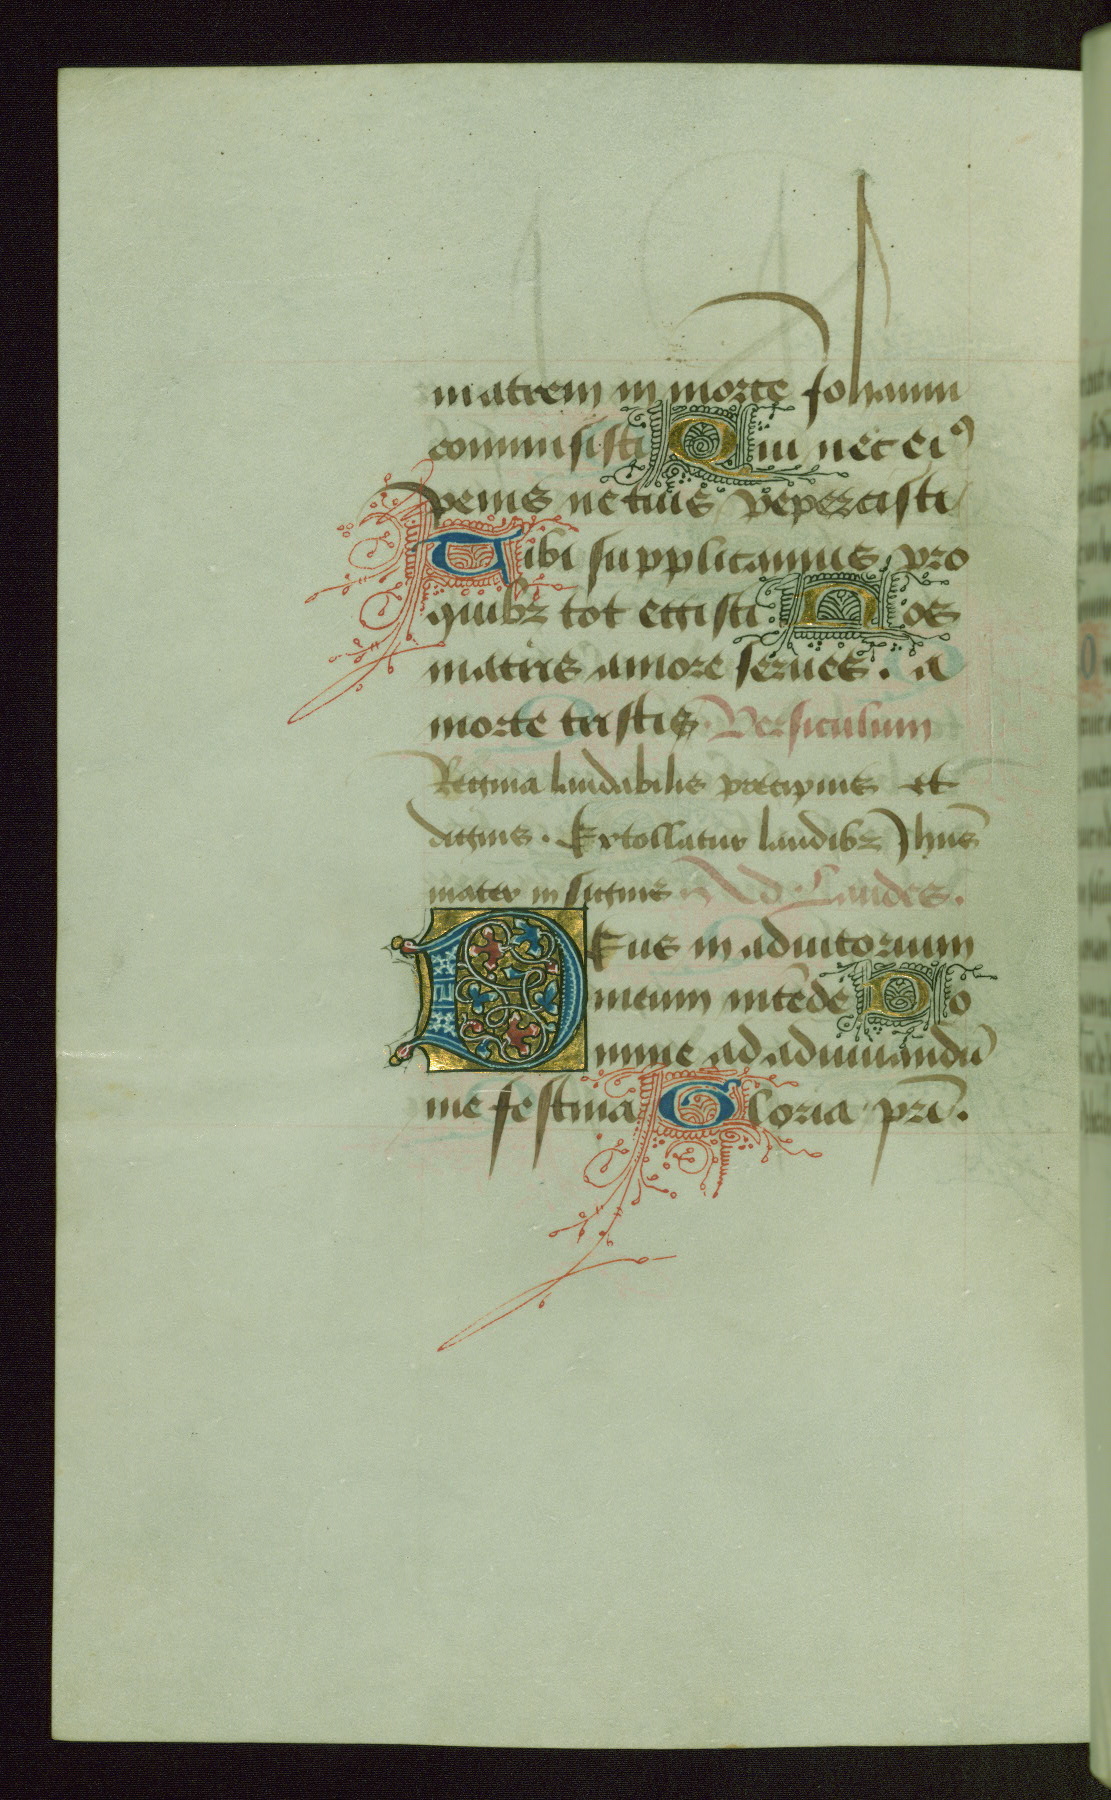 matrem in morte Johanni
commisisti Qui nec eiꝰ
penis ne tuis pepercisti
Tibi supplicamus pro
quibꝫ tot egisti Nos
matris amore serues. a
morte tristis Versiculum
Regina laudabilis precipuis et
dignis. Extollatur laudibꝫ Jhūs
mater insignis Ad Laudes.
DEus in adiutorium
meum intēde Do
mine ad adiuuandū
me festina Gloria pr̄i.